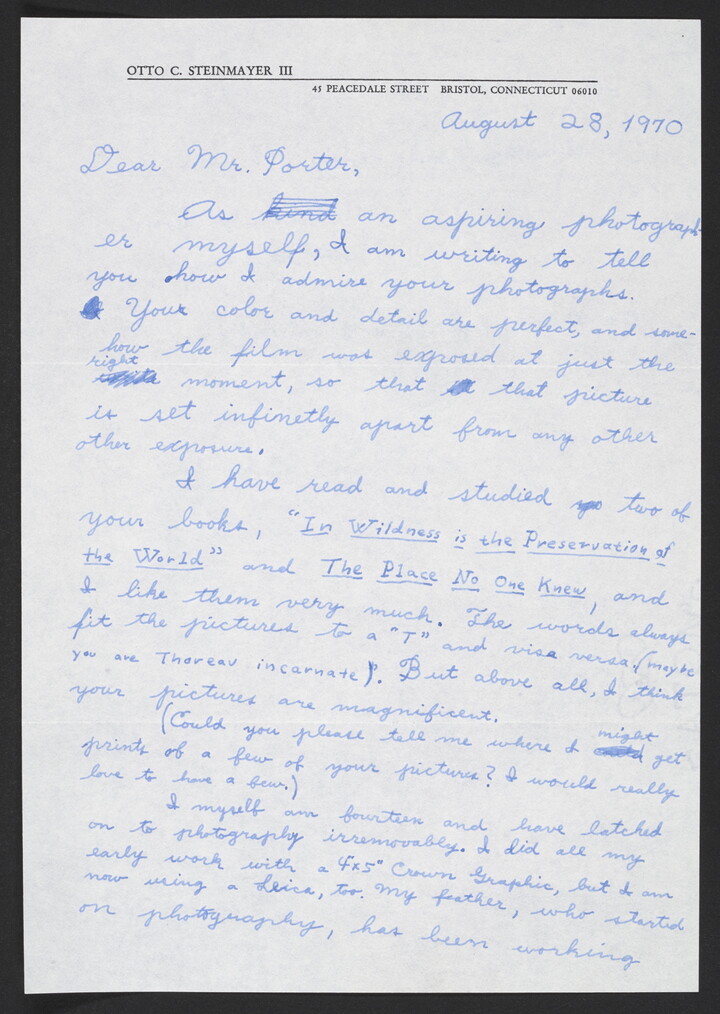 OTTO C. STEINMAYER III
45 PEACEDALE STREET BRISTOL, CONNECTICUT 06010
August 28, 1970
Dear Mr. Porter,
As kind an aspiring photograph-
er myself, I am writing to tell
you how I admire your photographs.
Your color and detail are perfect, and some-
how the film was exposed at just the
right
moment, so that that picture
is set infinetly apart from any other
other exposure.
I have read and studied two of
your books, "In Wildness is the Preservation of
the World" and The Place No One Knew, and
I like them very much. The words always
fit the pictures to a "T" and visa versa. (maybe
you are Thoreau incarnate). But above all, I think
your pictures are magnificent.
(Could you please tell me where I might get
prints of a few of your pictures? I would really
love to have a few.)
I myself am fourteen and have latched
on to photography irremovably. I did all my
early work with a 4"x5" Crown Graphic, but I am
now using a Leica, too. My father, who started
on photography, has been working